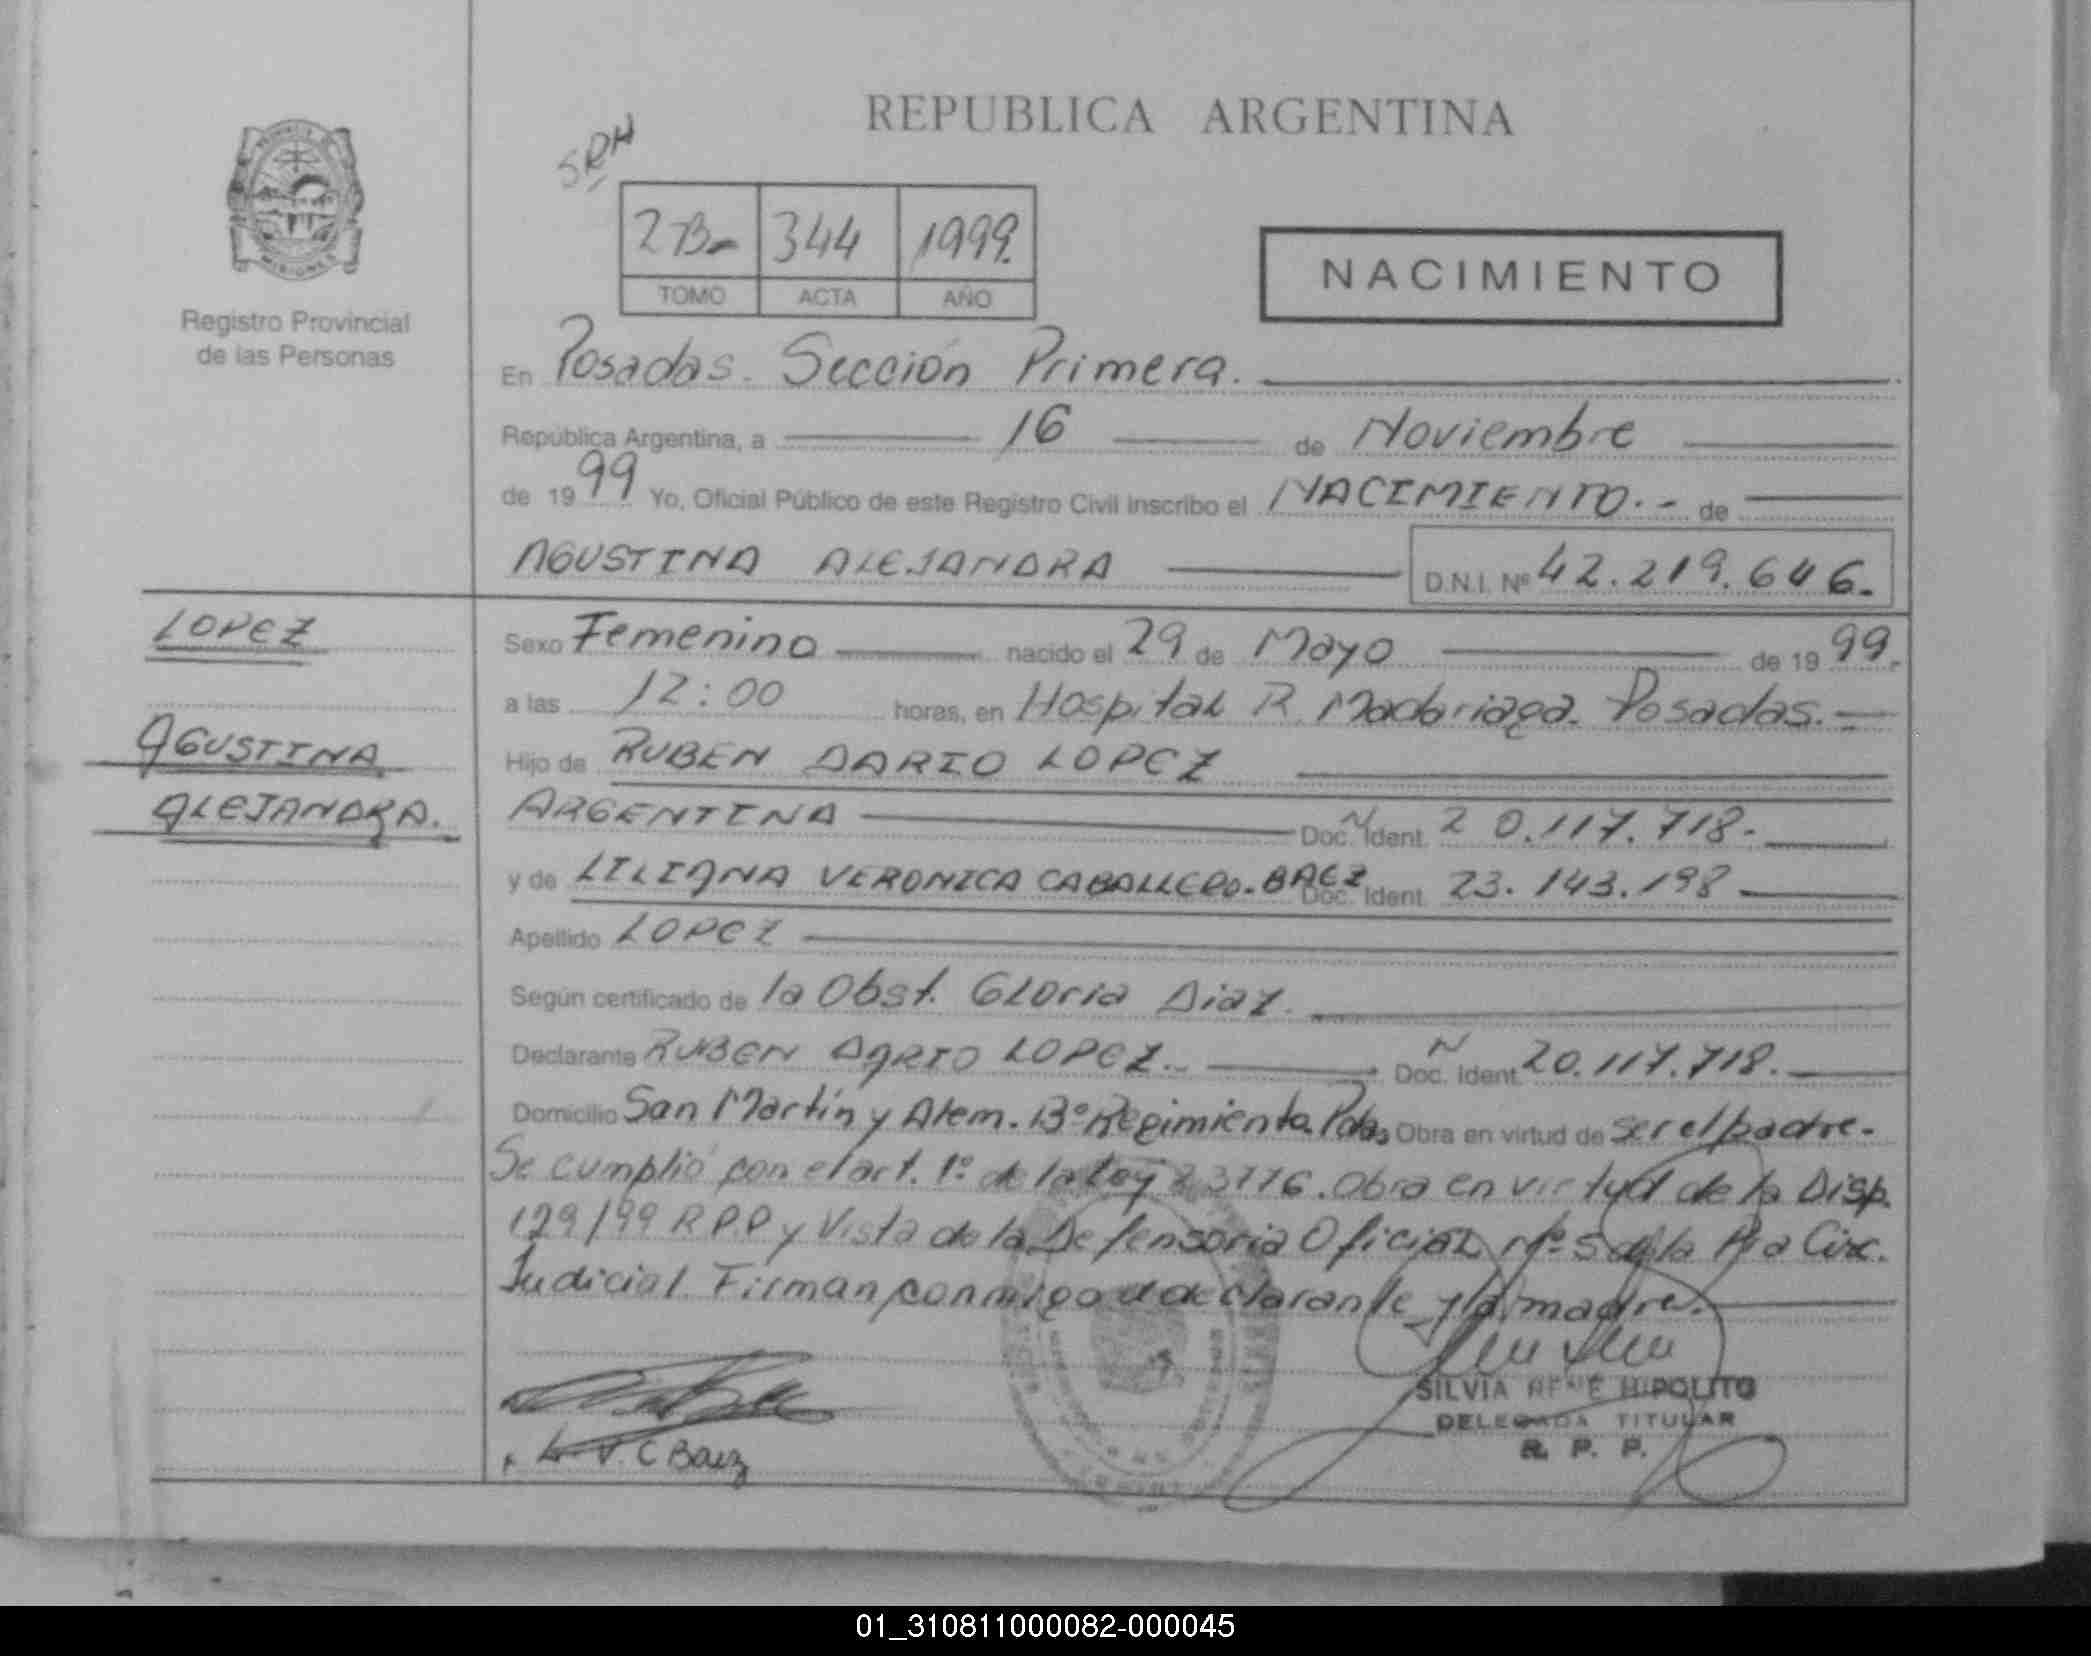 REPUBLICA ARGENTINA
SRH
2 B- 344 1999.
TOMO ACTA AÑO
NACIMIENTO
MISIONES
Registro Provincial
de las Personas
En Posadas. Sección Primera.
República Argentina, a 16 de Noviembre
de 1999 Yo, Oficial Público de este Registro Civil inscribo el NACIMIENTO.- de
AGUSTINA ALEJANDRA D.N.I. Nº 42.219.646.
LOPEZ
AGUSTINA
ALEJANDRA.
Sexo Femenino nacido el 29 de Mayo de 1999.
a las 12:00 horas, en Hospital R. Madariaga. Posadas.-
Hijo de RUBEN DARIO LOPEZ
ARGENTINA Doc. N Ident. 20.117.718.
y de LILIANA VERONICA CABALLERO-BAEZ Doc. Ident. 23.143.198
Apellido LOPEZ
Según certificado de la Obst. Gloria Diaz.
Declarante RUBEN DARIO LOPEZ.- Doc. N Ident. 20.117.718.
Domicilio San Martín y Alem. Bº Regimiento. Pdas Obra en virtud de ser el padre.
Se cumplió con el art. 1º de la Ley 23776. Obra en virtud de la Disp.
129/99 R.P.P y Vista de la Defensoria Oficial Nº 5 de la Circ.
Judicial. Firman conmigo el declarante y la madre.
L. V. C Baez
SILVIA RENÉ HIPOLITO
DELEGADA TITULAR
R. P. P.
01_310811000082-000045